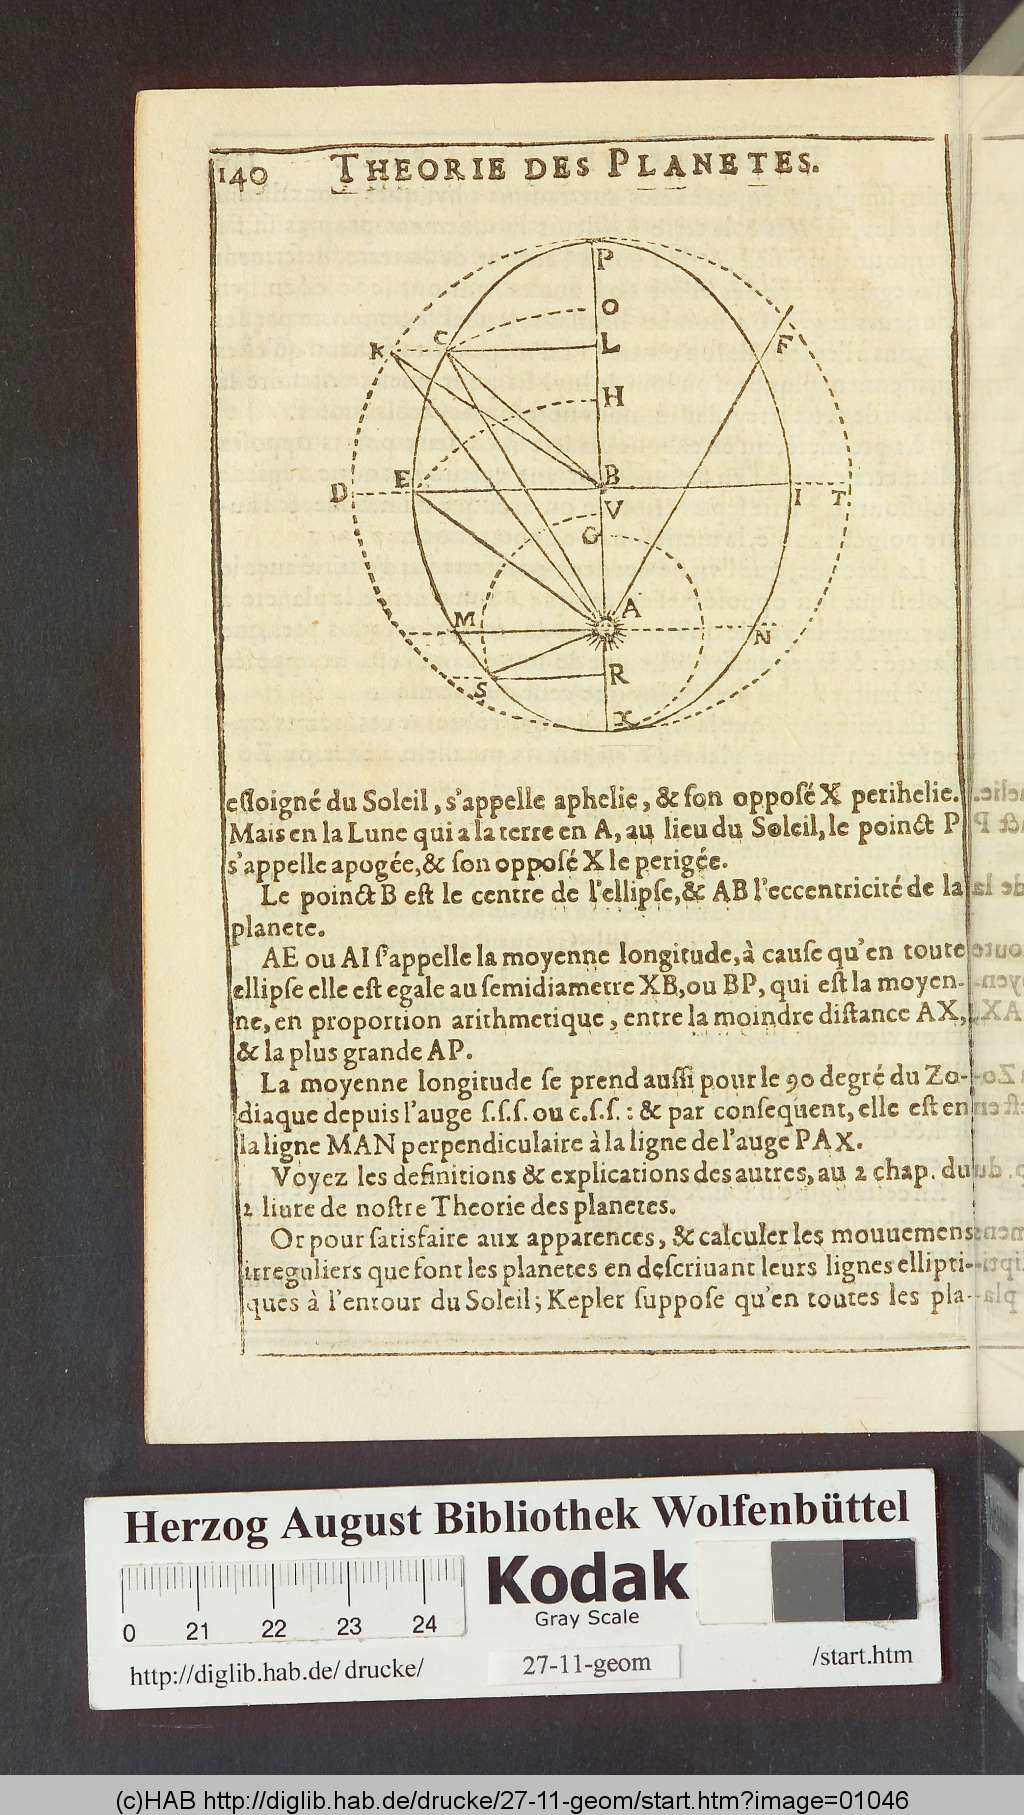 140 THEORIE DES PLANETES.
P
O
L
F
K C
H
E B
D I T
V
G
A
M N
S R
X
esloigné du Soleil, s'appelle aphelie, & son opposé X perihelie.
Mais en la Lune qui a la terre en A, au lieu du Soleil, le poinct P
s'appelle apogée, & son opposé X le perigée.
Le poinct B est le centre de l'ellipse, & AB l'eccentricité de la
planete.
AE ou AI s'appelle la moyenne longitude, à cause qu'en toute
ellipse elle est egale au semidiametre XB, ou BP, qui est la moyen-
ne, en proportion arithmetique, entre la moindre distance AX,
& la plus grande AP.
La moyenne longitude se prend aussi pour le 90 degré du Zo-
diaque depuis l'auge s.s.s. ou c.s.s. : & par consequent, elle est en
la ligne MAN perpendiculaire à la ligne de l'auge PAX.
Voyez les definitions & explications des autres, au 2 chap. du
2 liure de nostre Theorie des planetes.
Or pour satisfaire aux apparences, & calculer les mouuemens
irreguliers que font les planetes en descriuant leurs lignes ellipti-
ques à l'entour du Soleil; Kepler suppose qu'en toutes les pla-
Herzog August Bibliothek Wolfenbüttel
0 21 22 23 24
Kodak
Gray Scale
http://diglib.hab.de/drucke/ 27-11-geom /start.htm
(c)HAB http://diglib.hab.de/drucke/27-11-geom/start.htm?image=01046